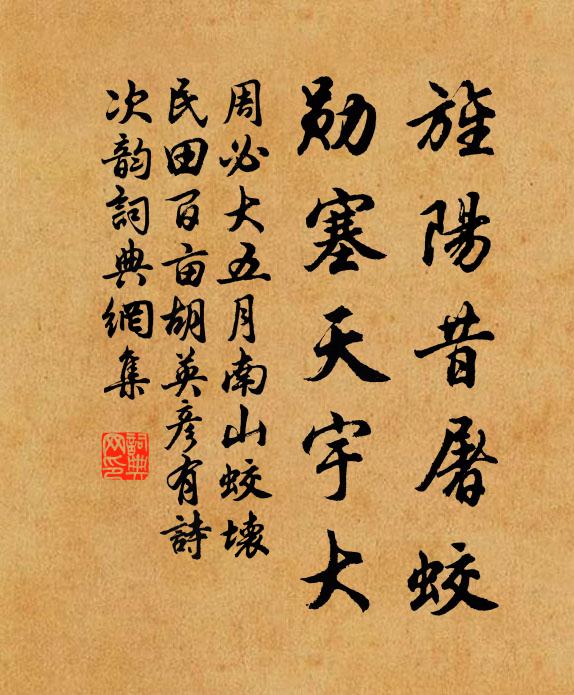 旌陽昔屠蛟
勛塞天宇大
周必大五月南山蛟壞
民田百亩胡英彥有詩
次韵詞典網集
詞典网印